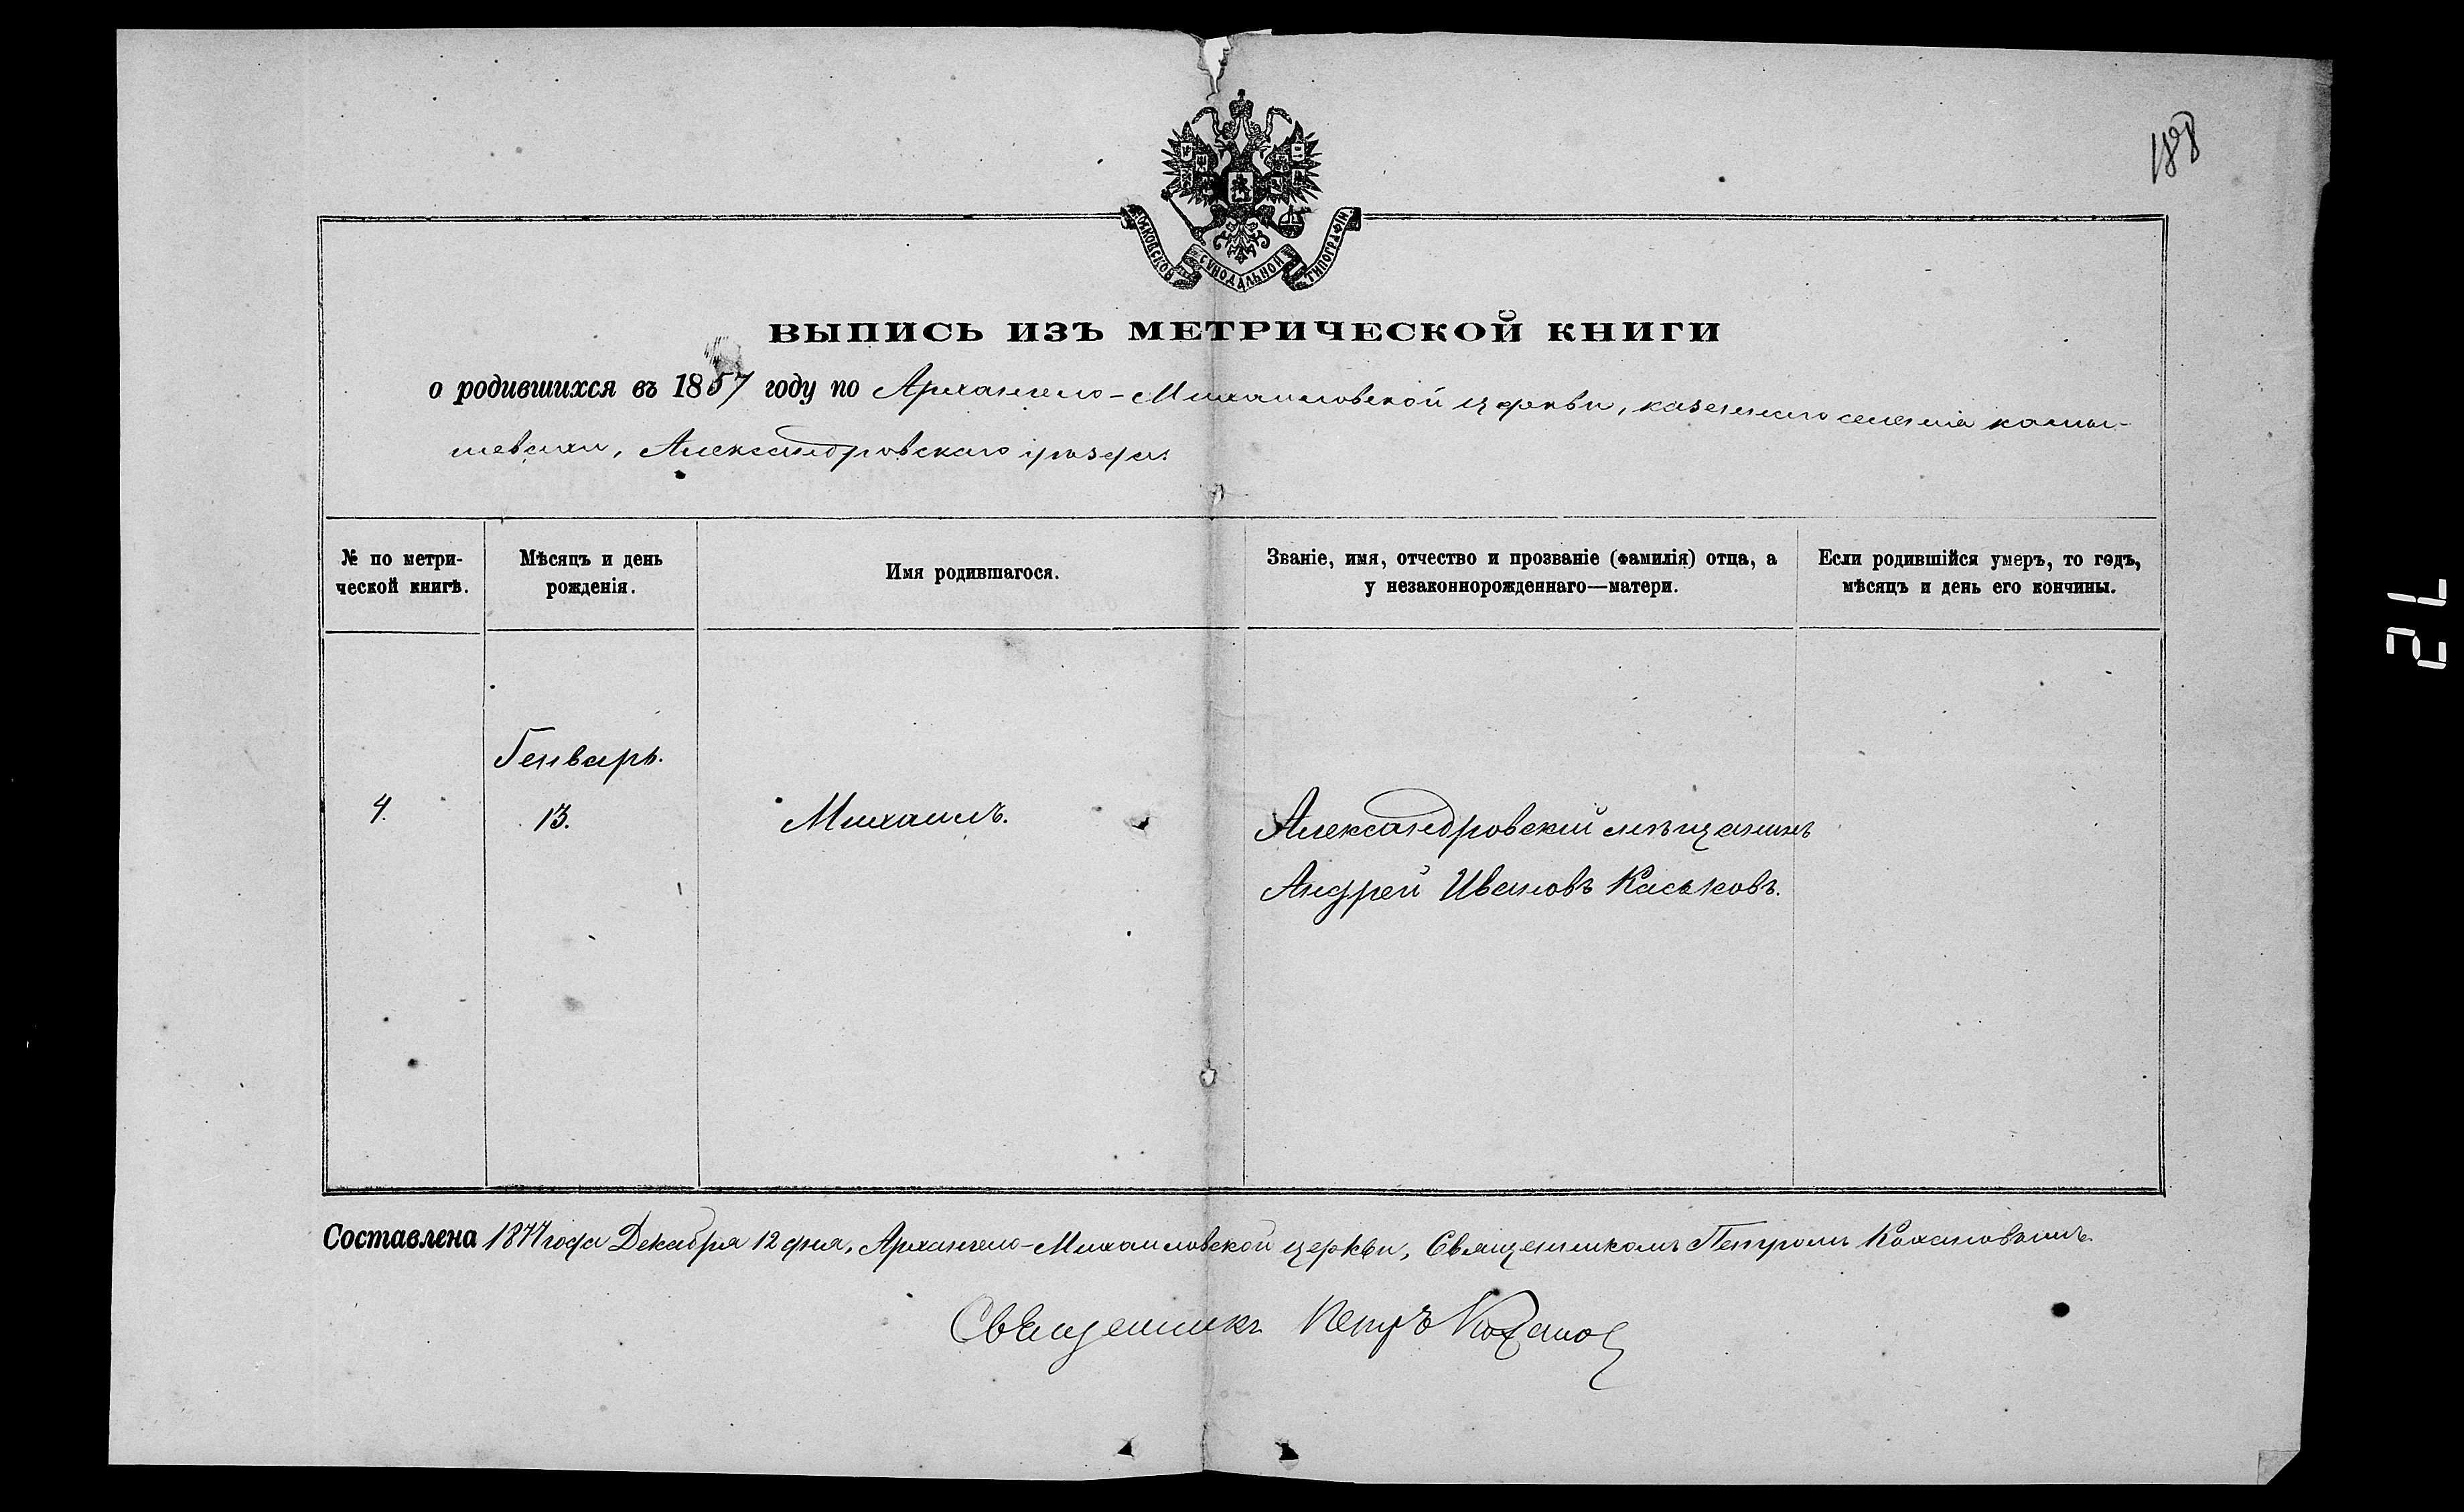 188
МОСКОВСКОЙ СѴНОДАЛЬНОЙ ТИПОГРАФІИ
ВЫПИСЬ ИЗЪ МЕТРИЧЕСКОЙ КНИГИ
о родившихся въ 1857 году по Архангело-Михаиловской церкви, казеннаго селенія камы-
шевахи, Александровскаго уѣзда.
№ по метри-
ческой книгѣ.
Мѣсяцъ и день
рожденія.
Имя родившагося.
Званіе, имя, отчество и прозваніе (фамилія) отца, а
у незаконнорожденнаго—матери.
Если родившійся умеръ, то годъ,
мѣсяцъ и день его кончины.
Генварь.
4. 13. Михаилъ. Александровский мѣщанинъ
Андрей Ивановъ Каськовъ.
Составлена 1877 года Декабря 12 дня, Архангело-Михаиловской церкви, Священникомъ Петромъ Кохановымъ.
Священникъ Петръ Коханов
21